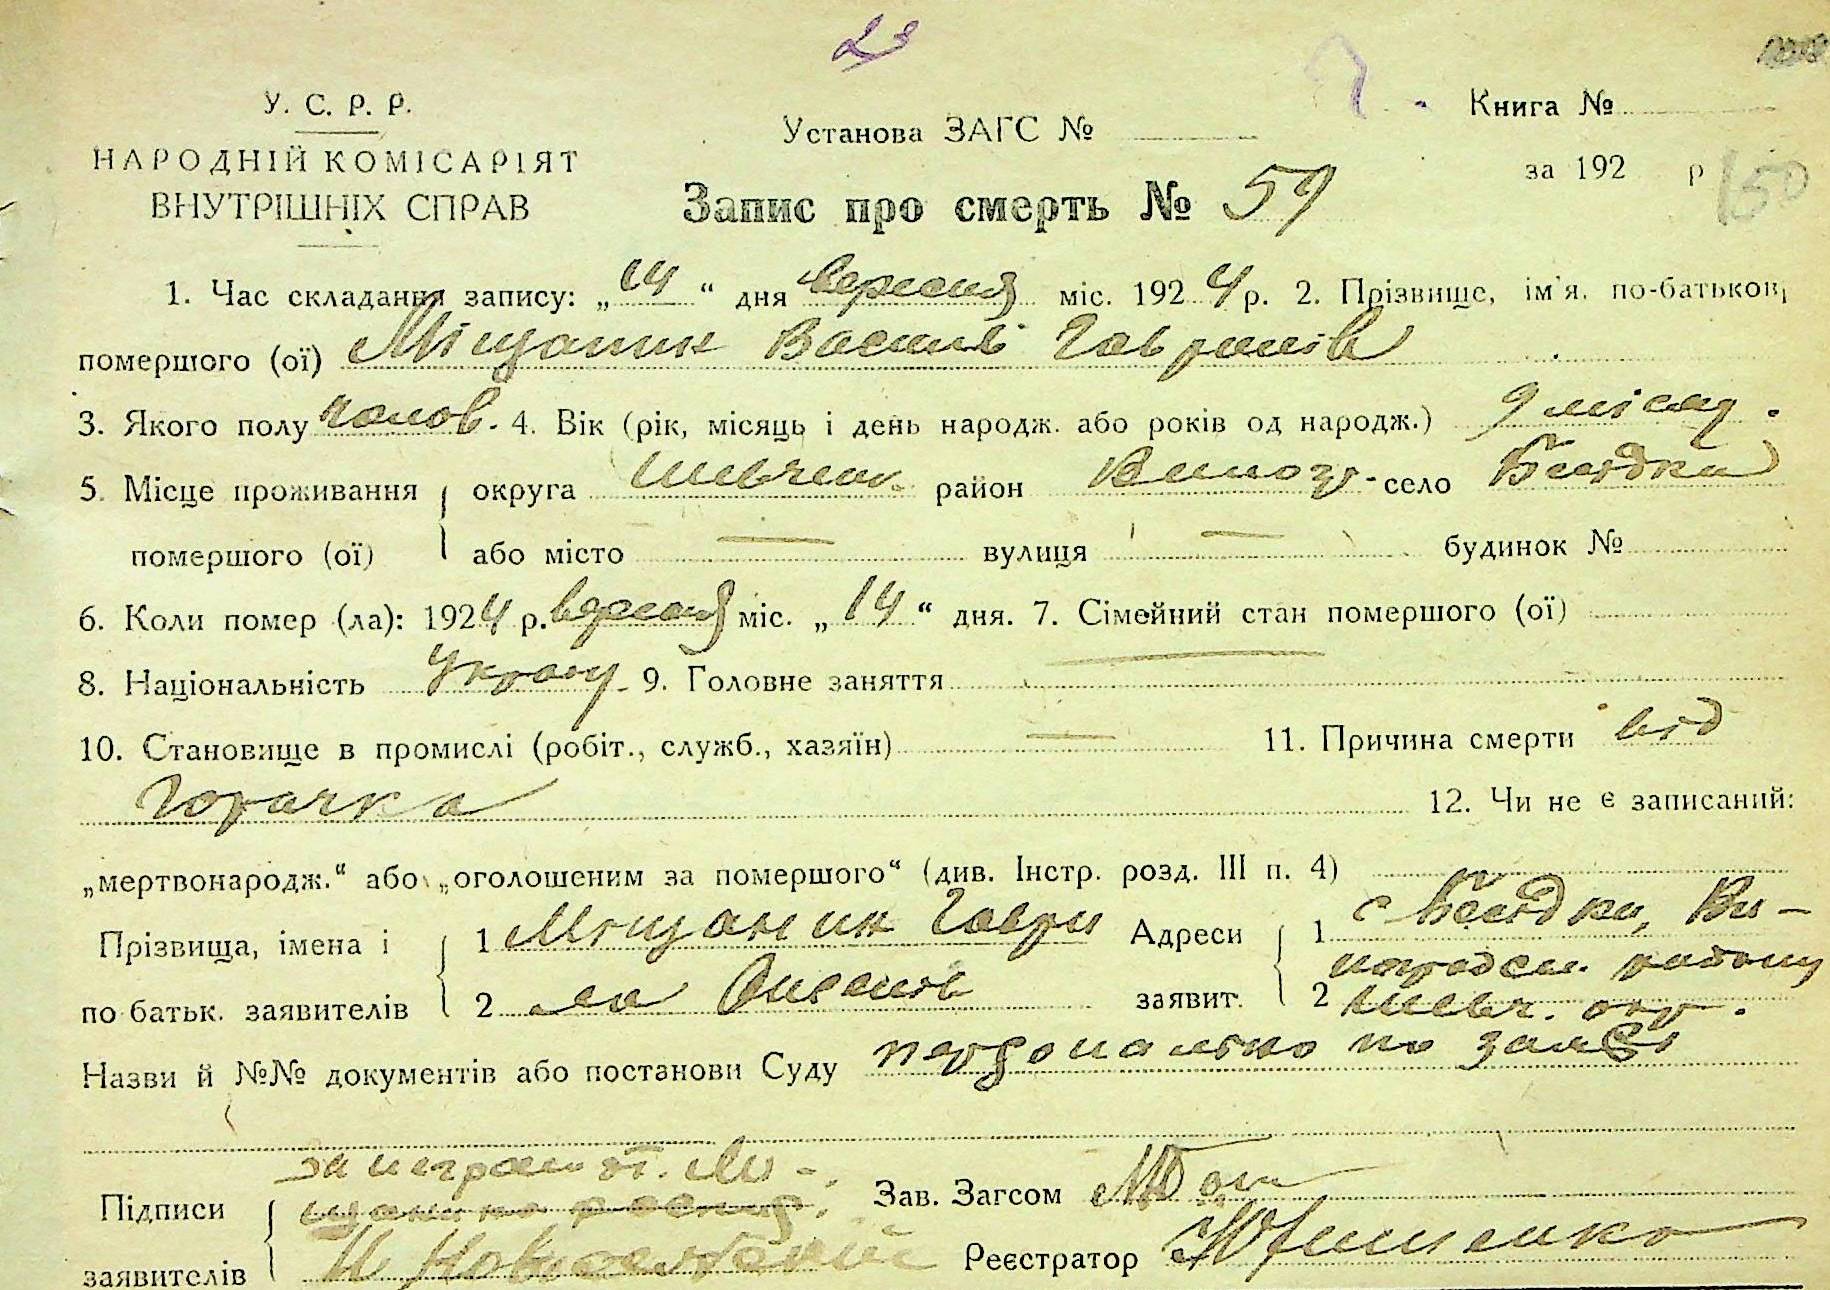 23
У. С. Р. Р.
НАРОДНІЙ КОМІСАРІЯТ
ВНУТРІШНІХ СПРАВ
Установа ЗАГС №
Книга №
за 192 р
150
Запис про смерть № 59
1. Час складання запису: „14“ дня вересня міс. 1924 р. 2. Прізвище, ім'я, по-батькові
помершого (ої) Міщанин Василь Гаврилів
3. Якого полу чолов. 4. Вік (рік, місяць і день народж. або років од народж.) 9 місяц.
5. Місце проживання округа Шевченк. район Виногр. село Босівка
помершого (ої) або місто — вулиця — будинок №
6. Коли помер (ла): 1924 р. вересня міс. „14“ дня. 7. Сімейний стан помершого (ої)
8. Національність Україн. 9. Головне заняття —
10. Становище в промислі (робіт., служб., хазяїн) — 11. Причина смерти від
горячка
12. Чи не є записаний:
„мертвонародж.“ або „оголошеним за помершого“ (див. Інстр. розд. III п. 4)
Прізвища, імена і по батьк. заявителів
1 Міщанин Гаври
2 ло
Адреси заявит.
1 с. Босівка, Ви-
2 ноградськ. району
Шевч. окр.
Назви й №№ документів або постанови Суду персонально по заяві
Підписи заявителів
за неграмот. Мі-
щанина
Зав. Загсом
Реєстратор